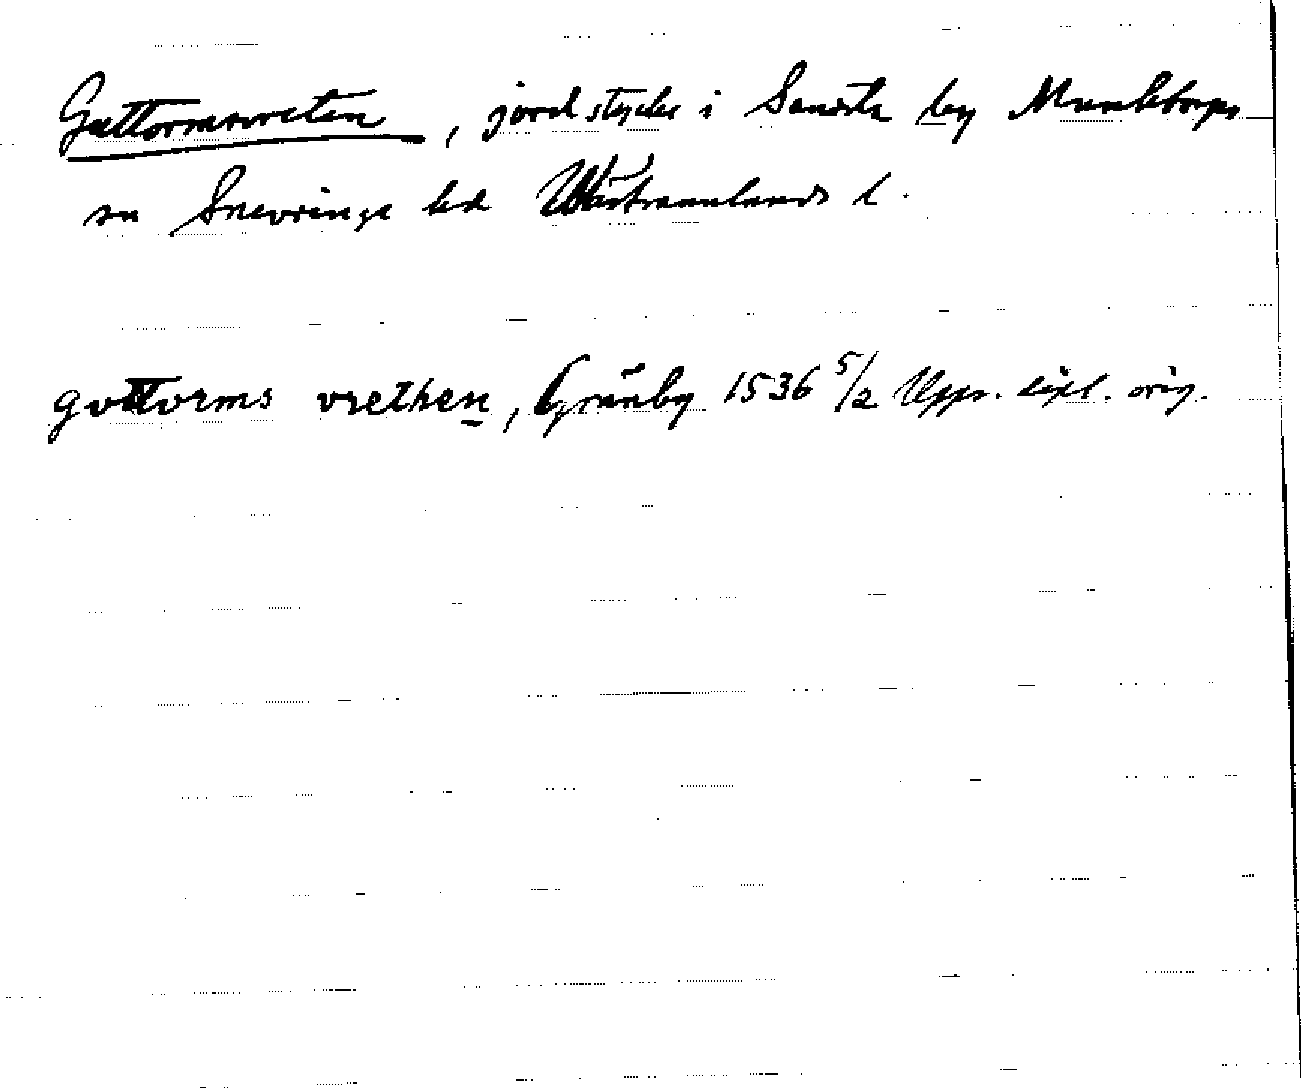 Guttormsvreten, jordstycke i Sandsta by Munktorps
sn Snevringe hd Västmanlands l.
guttorms vrethen, Gränby 1536 5/2 Upps. dipl. orig.